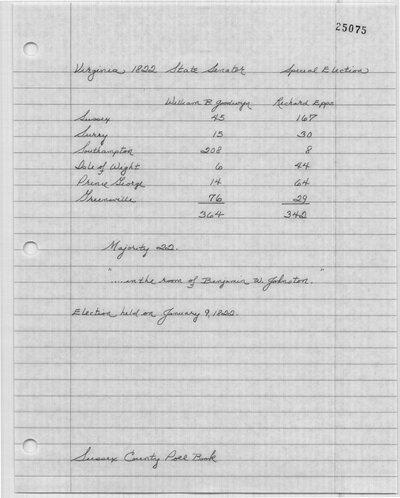 25075
Virginia 1822 State Senator Special Election
William B Goodwyn Richard Epps
Sussex 45 167
Surry 15 30
Southampton 208 8
Isle of Wight 6 44
Prince George 14 64
Greensville 76 29
364 342
Majority 22.
"....in the room of Benjamin W. Johnston."
Election held on January 9, 1822.
Sussex County Poll Book